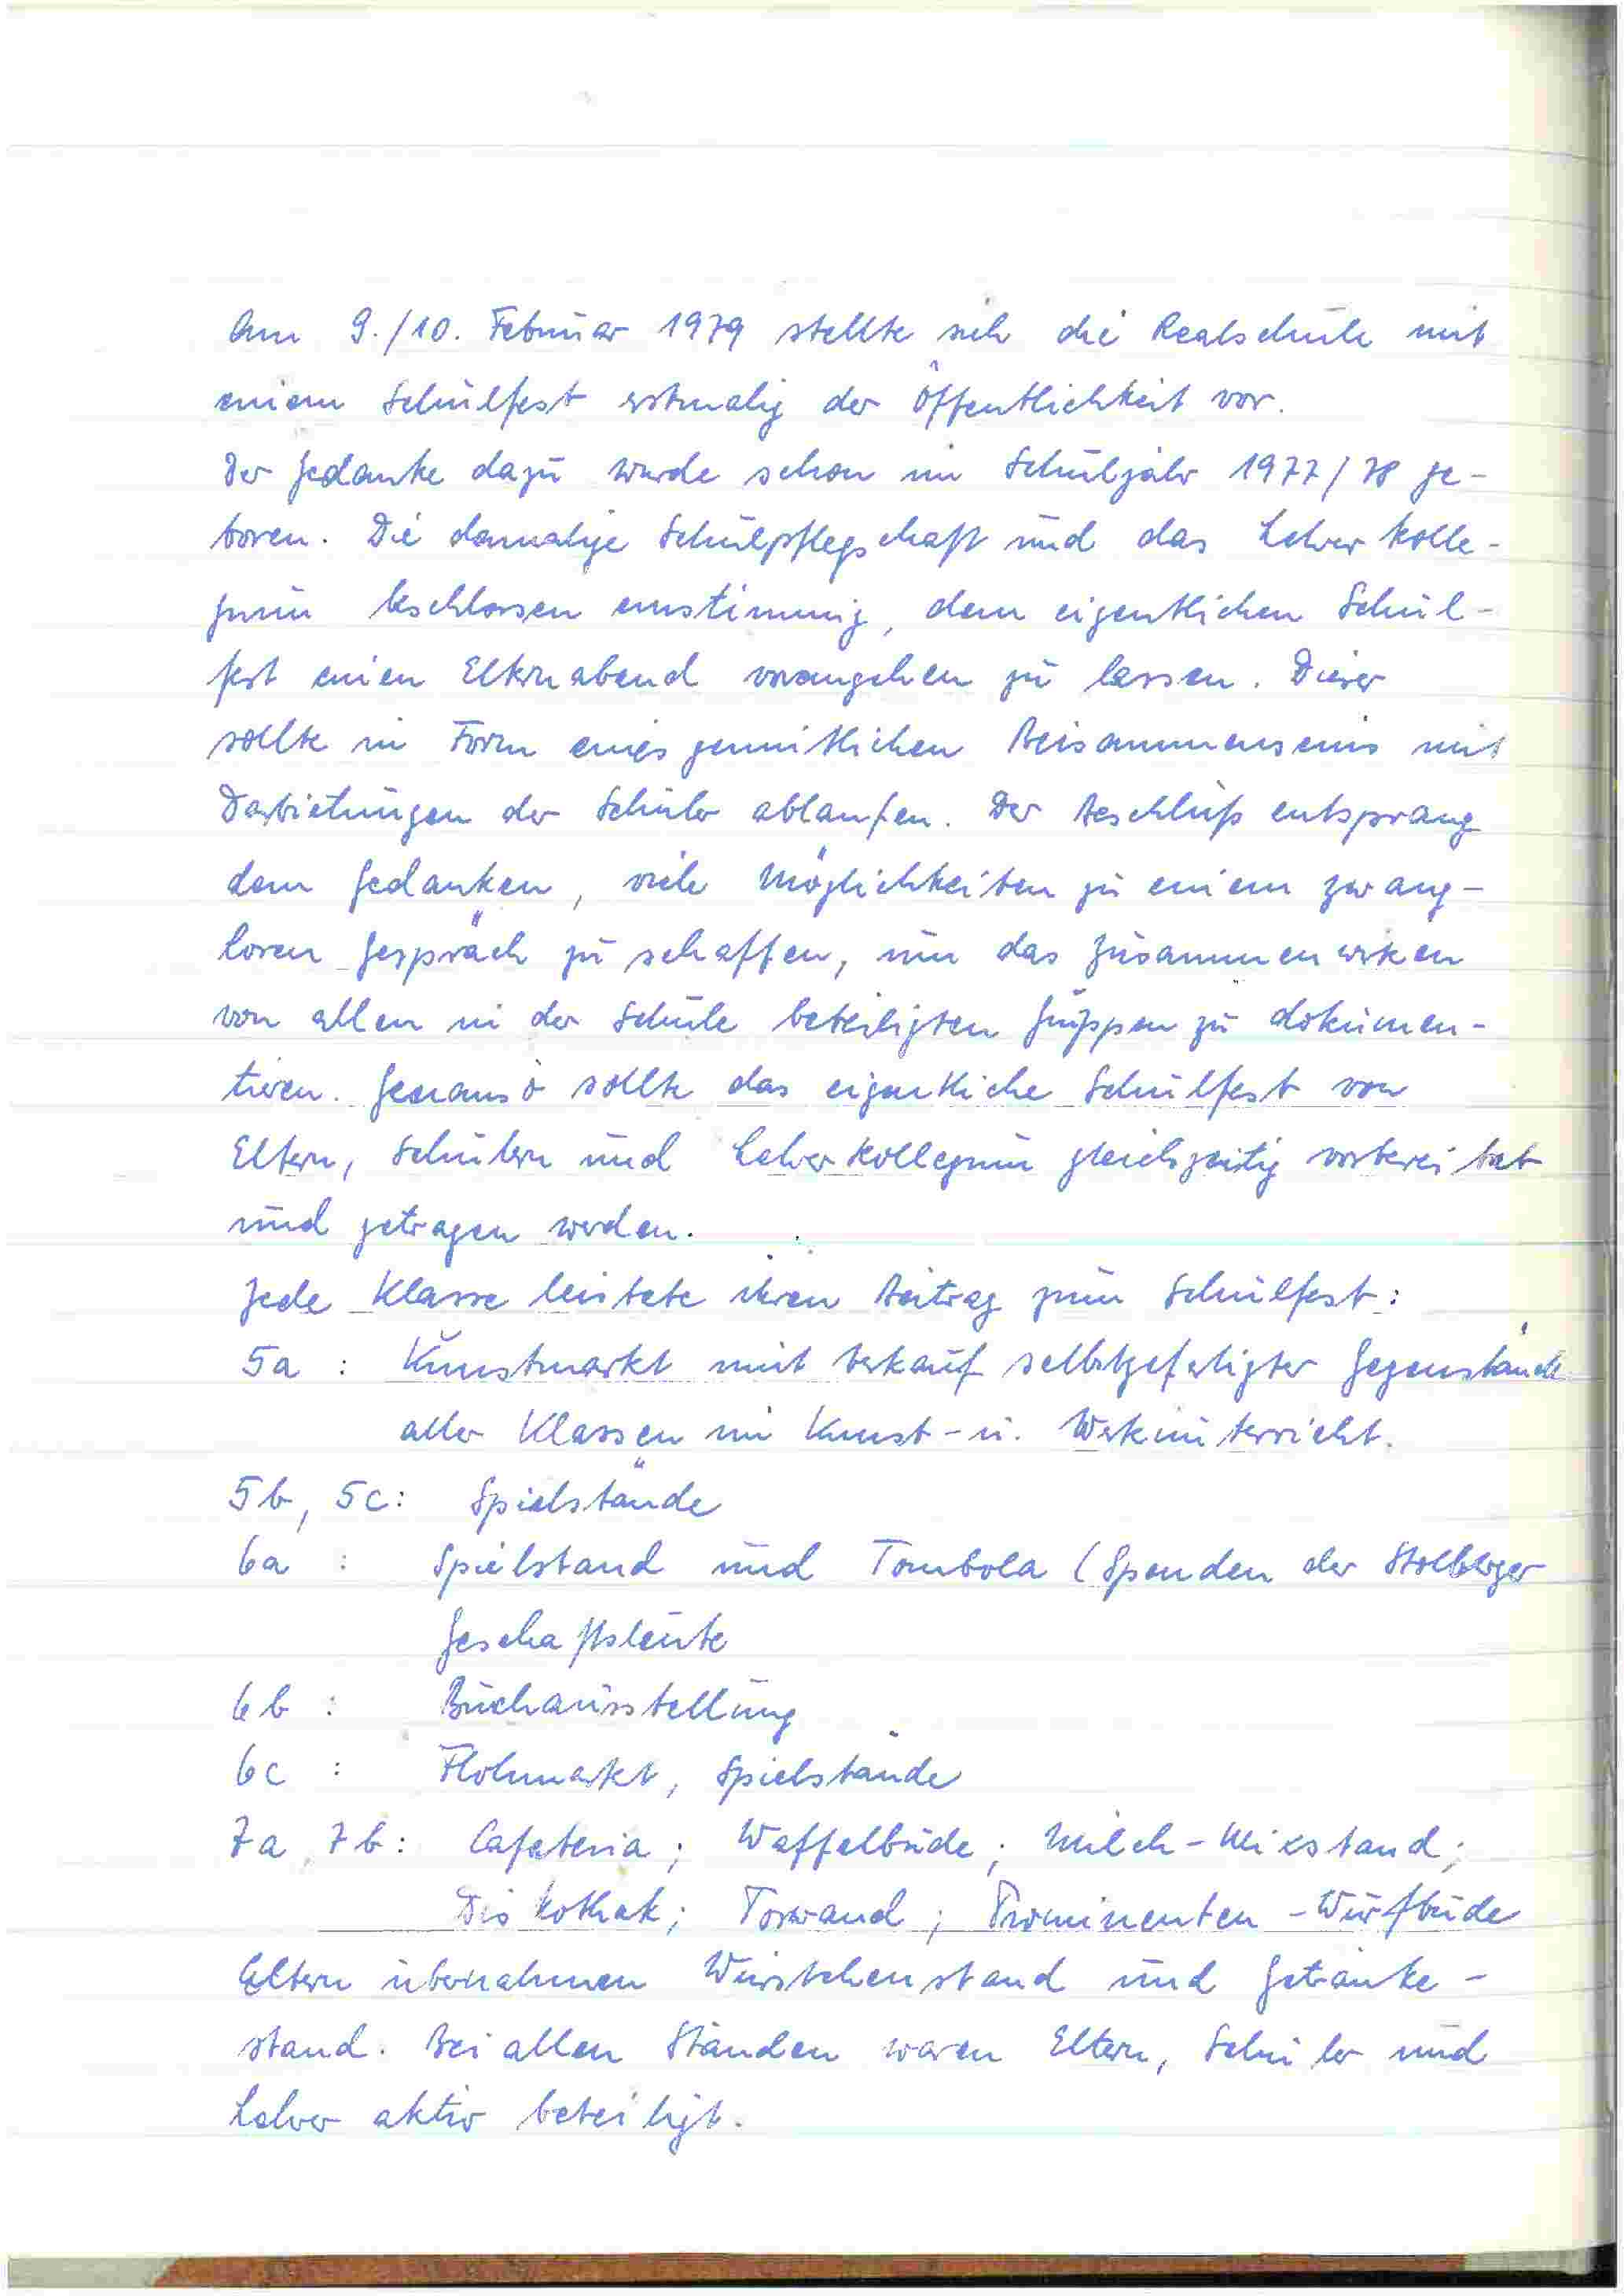 Am 9./10. Februar 1979 stellte sich die Realschule mit
einem Schulfest erstmalig der Öffentlichkeit vor.
Der Gedanke dazu wurde schon im Schuljahr 1977/78 ge-
boren. Die damalige Schulpflegschaft und das Lehrerkolle-
gium beschlossen einstimmig, dem eigentlichen Schul-
fest einen Elternabend vorangehen zu lassen. Dieser
sollte in Form eines gemütlichen Beisammenseins mit
Darbietungen der Schüler ablaufen. Der Beschluß entsprang
dem Gedanken, viele Möglichkeiten zu einem zwang-
losen Gespräch zu schaffen, um das Zusammenwirken
von allen in der Schule beteiligten Gruppen zu dokumen-
tieren. Genauso sollte das eigentliche Schulfest von
Eltern, Schülern und Lehrerkollegium gleichzeitig vorbereitet
und getragen werden.
Jede Klasse leistete ihren Beitrag zum Schulfest:
5a : Kunstmarkt mit Verkauf selbstgefertigter Gegenstände
aller Klassen im Kunst- u. Werkunterricht.
5b, 5c: Spielstände
6a : Spielstand und Tombola (Spenden der Stolberger
Geschäftsleute
6b : Buchausstellung
6c : Flohmarkt, Spielstände
7a, 7b: Cafeteria; Waffelbude; Milch-Mixstand;
Diskothek; Torwand; Prominenten-Wurfbude
Eltern übernahmen Würstchenstand und Getränke-
stand. Bei allen Ständen waren Eltern, Schüler und
Lehrer aktiv beteiligt.